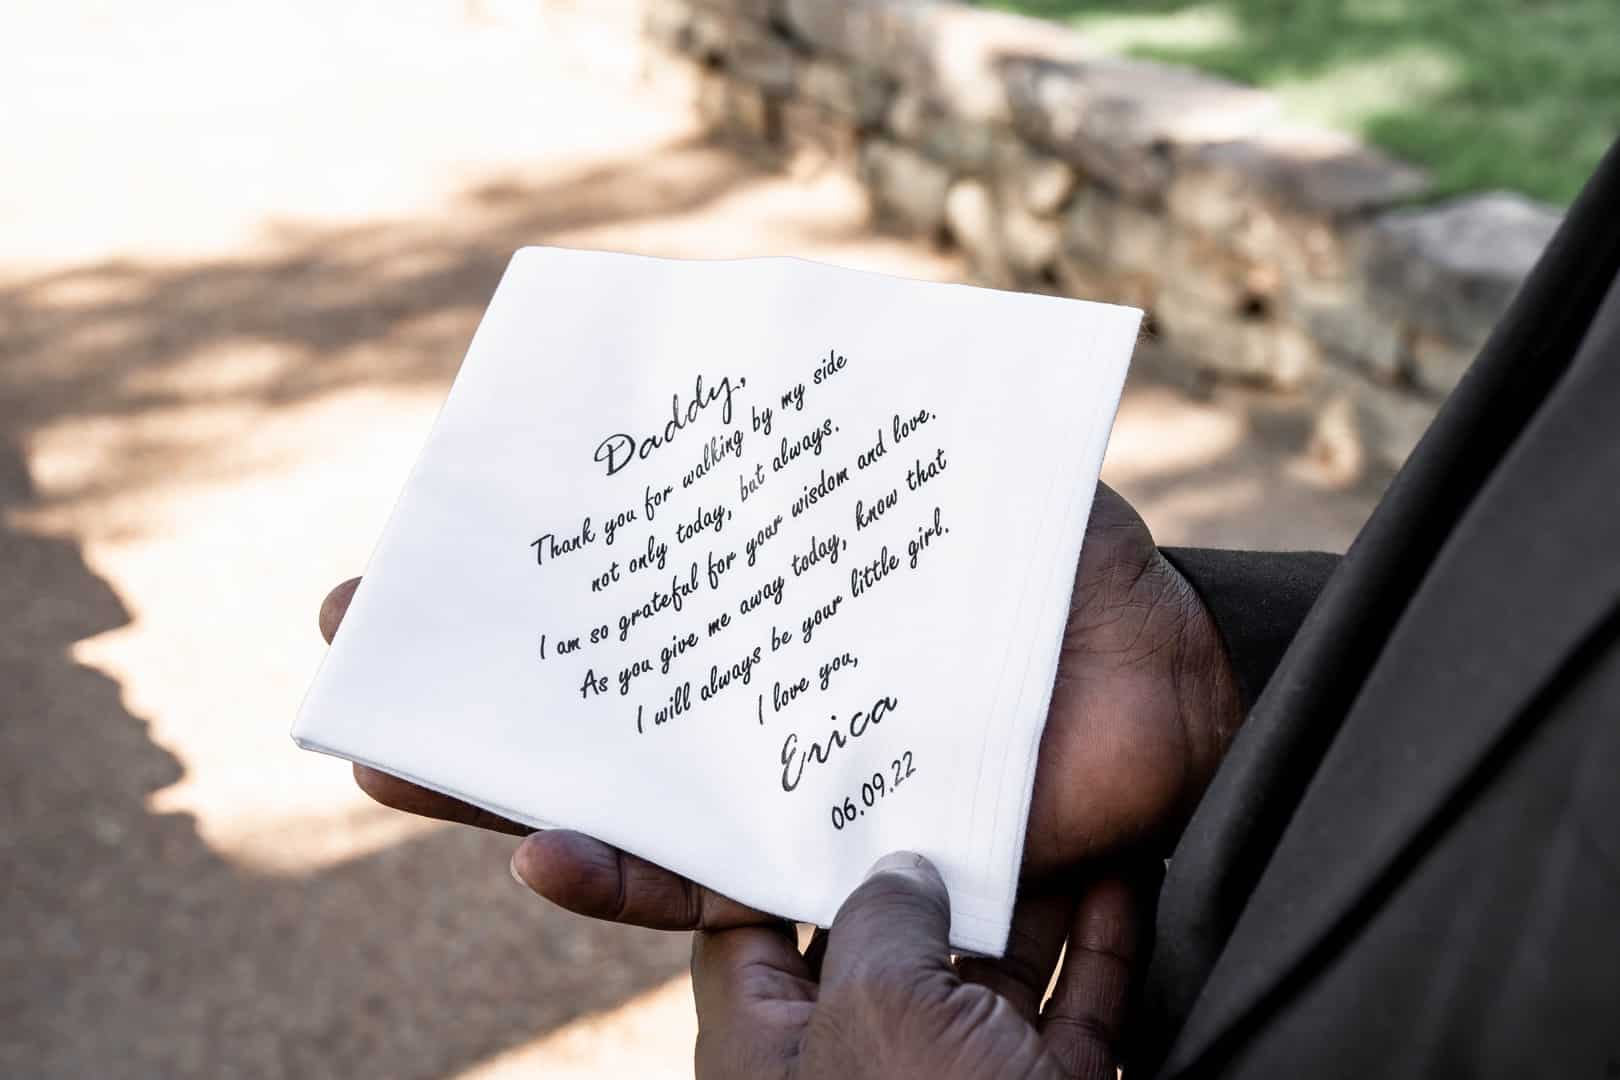 Daddy,
Thank you for walking by my side
not only today, but always.
I am so grateful for your wisdom and love.
As you give me away today, know that
I will always be your little girl.
I love you,
Erica
06.09.22